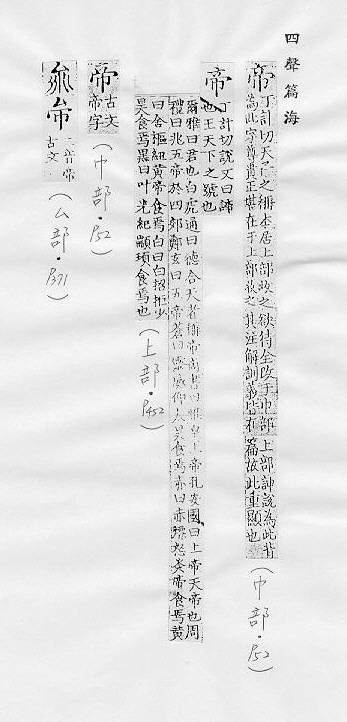 四聲篇海
帝
丁計切天子之稱本居上部故之
為此字尊貴正堪在于上部故之
欲待全改于巾部上部訷說為此背
其注解訓義皆在篇故此重顯也
(巾部·P52)
帝
丁計切說文曰諦
也王天下之號也
爾雅曰君也白虎通曰德合天者稱帝尚書曰惟皇上帝孔安國曰上帝天帝也周
禮曰兆五帝於四郊鄭玄曰五帝蒼曰靈威仰食焉赤曰赤熛怒炎帝食焉黃
曰含樞紐黃帝食焉白曰白招拒少
昊食焉黑曰叶光紀顓頊食焉也
(上部·P452)
帝
古文
帝字
(巾部·P52)
二音帝
古文
(厶部·P371)